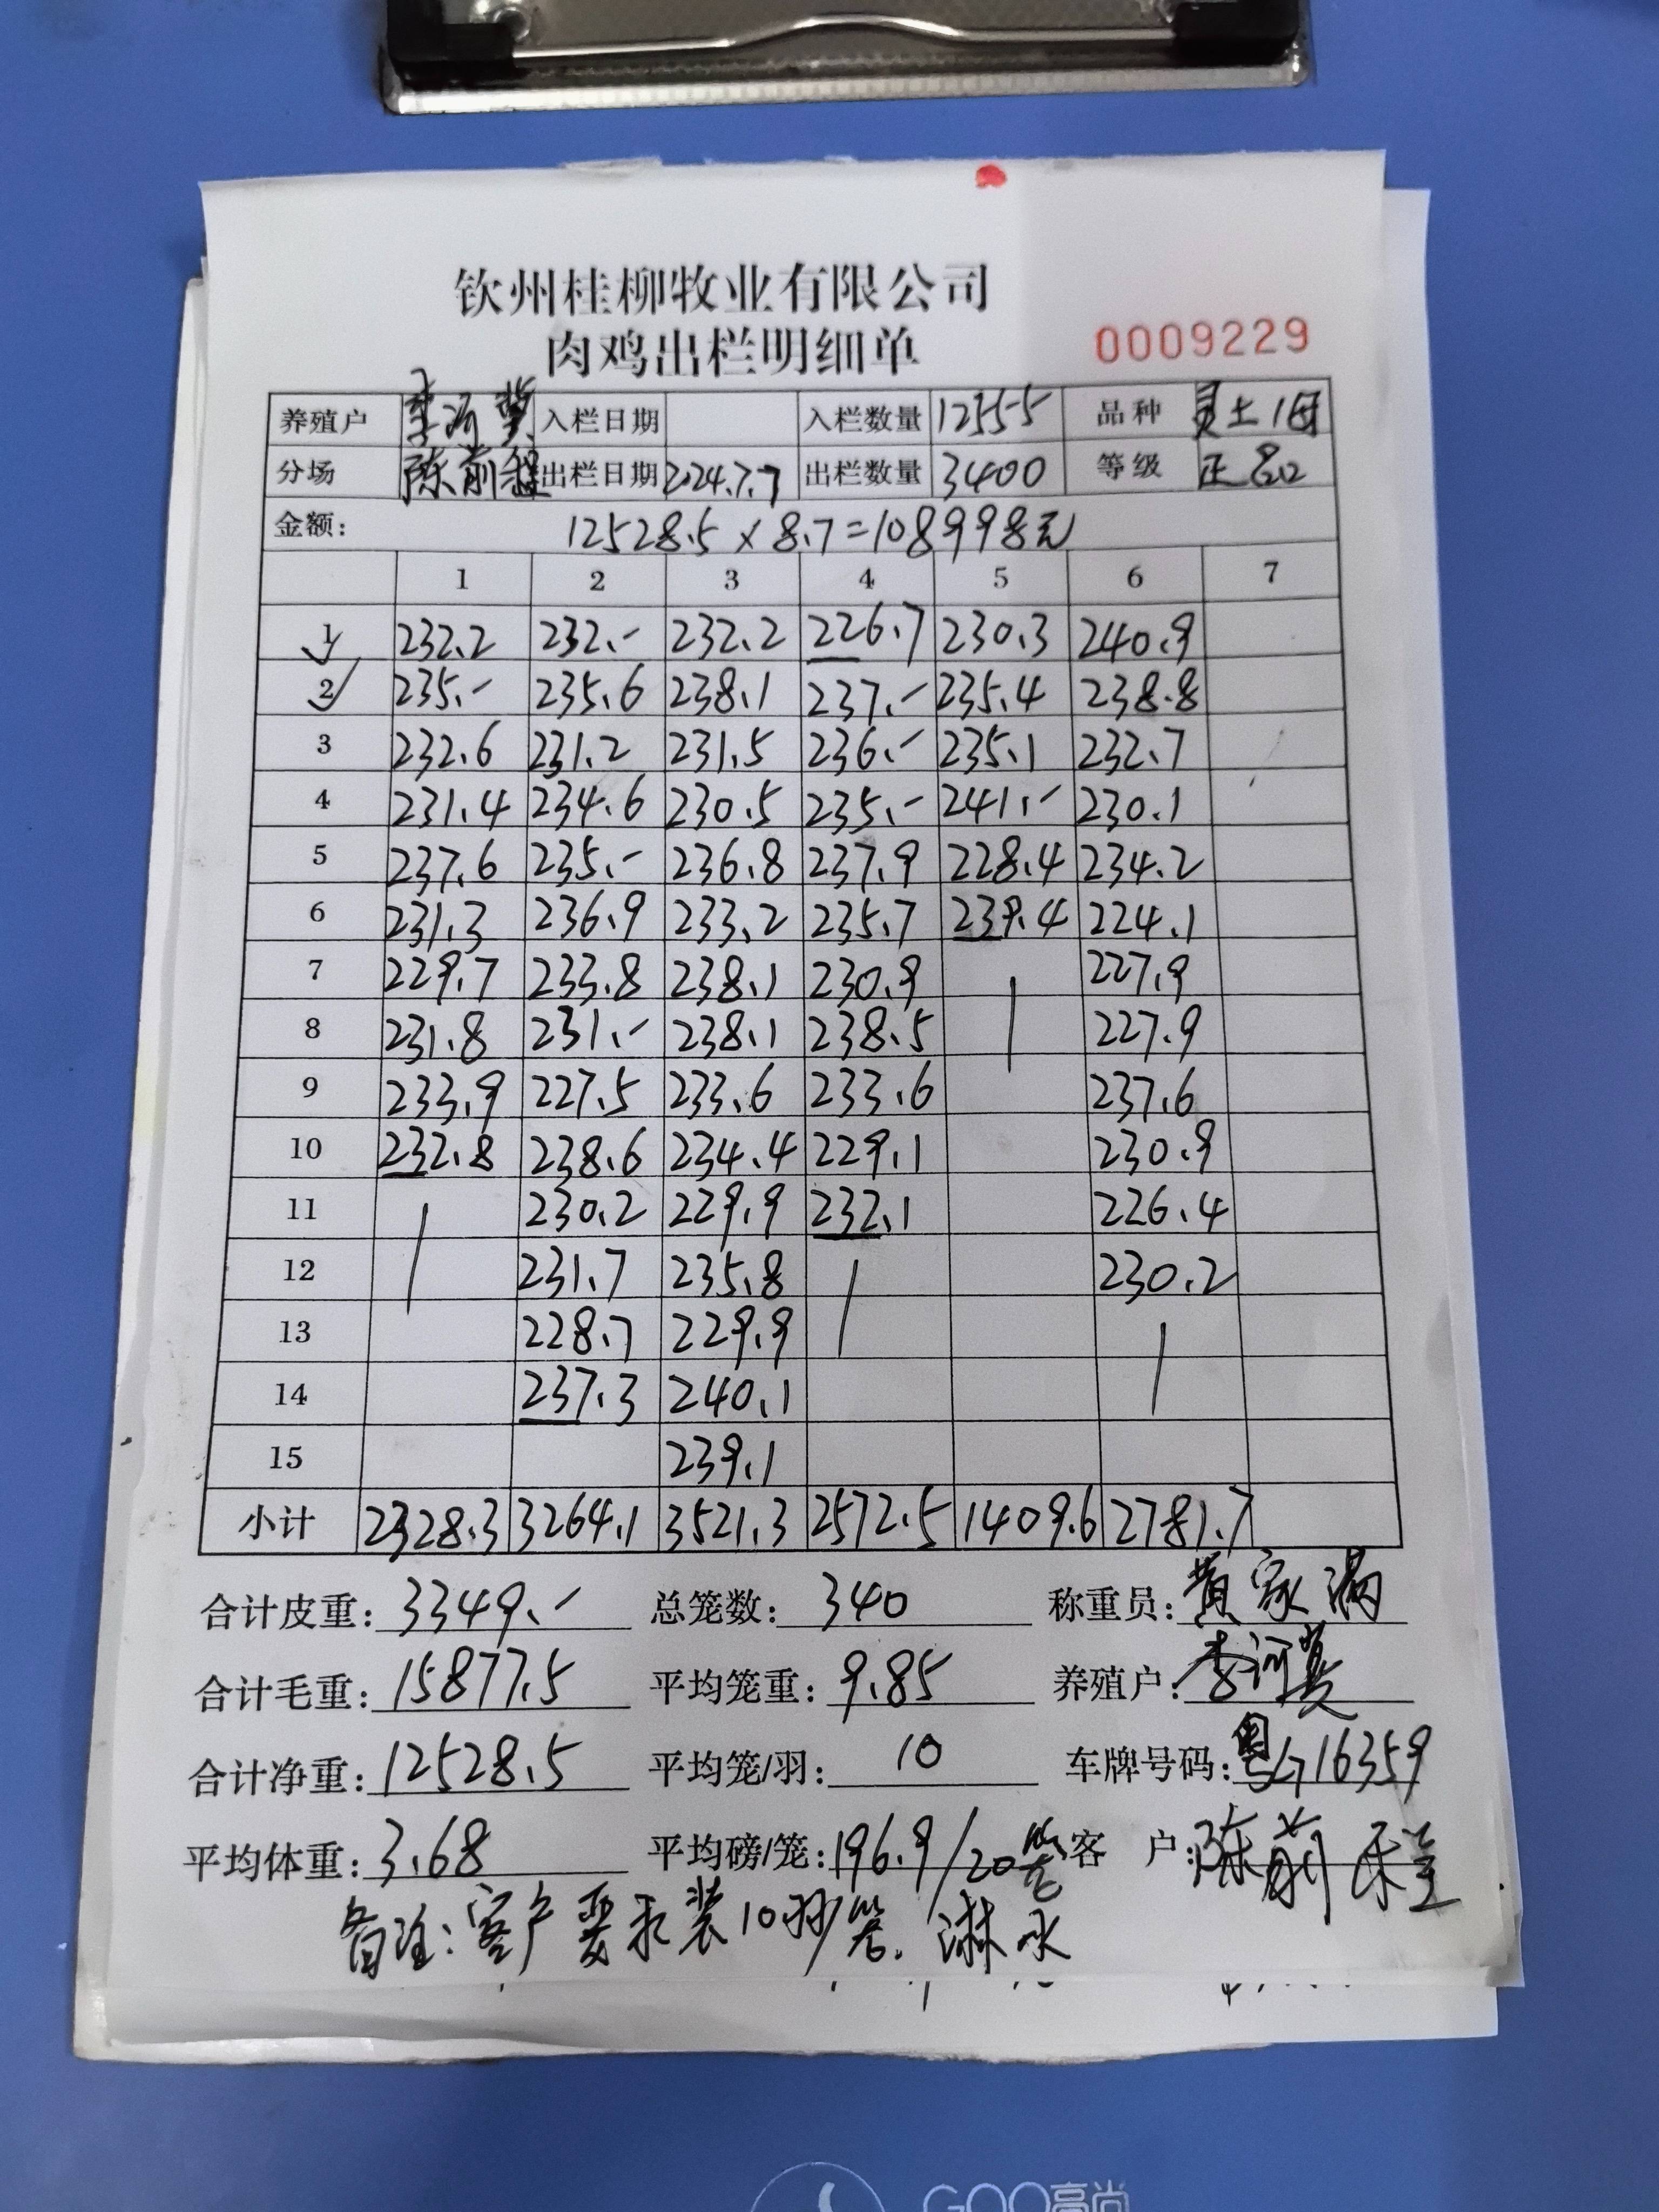 钦州桂柳牧业有限公司
肉鸡出栏明细单
0009229
养殖户 李河 入栏日期 入栏数量 12355 品种 灵土1母
分场 陈前程 出栏日期 2024.7.7 出栏数量 3400 等级 正品
金额: 12528.5 × 8.7 = 108998元
1 2 3 4 5 6 7
1 232.2 232.- 232.2 226.7 230.3 240.9
2 235.- 235.6 238.1 237.- 235.4 238.8
3 232.6 231.2 231.5 236.- 235.1 232.7
4 231.4 234.6 230.5 235.- 241.- 230.1
5 237.6 235.- 236.8 237.9 228.4 234.2
6 231.3 236.9 233.2 235.7 239.4 224.1
7 229.7 233.8 238.1 230.9 227.9
8 231.8 231.- 238.1 238.5 227.9
9 233.9 227.5 233.6 233.6 237.6
10 232.8 238.6 234.4 229.1 230.9
11 230.2 229.9 232.1 226.4
12 231.7 235.8 230.2
13 228.7 229.9
14 237.3 240.1
15 239.1
小计 2328.3 3264.1 3521.3 2572.5 1409.6 2781.7
合计皮重: 3349.- 总笼数: 340 称重员: 黄家满
合计毛重: 15877.5 平均笼重: 9.85 养殖户: 李河
合计净重: 12528.5 平均笼/羽: 10 车牌号码: 粤G16359
平均体重: 3.68 平均磅/笼: 196.9/20笼 客 户: 陈前程
备注: 客户要求装10羽/笼. 淋水
GOO高尚